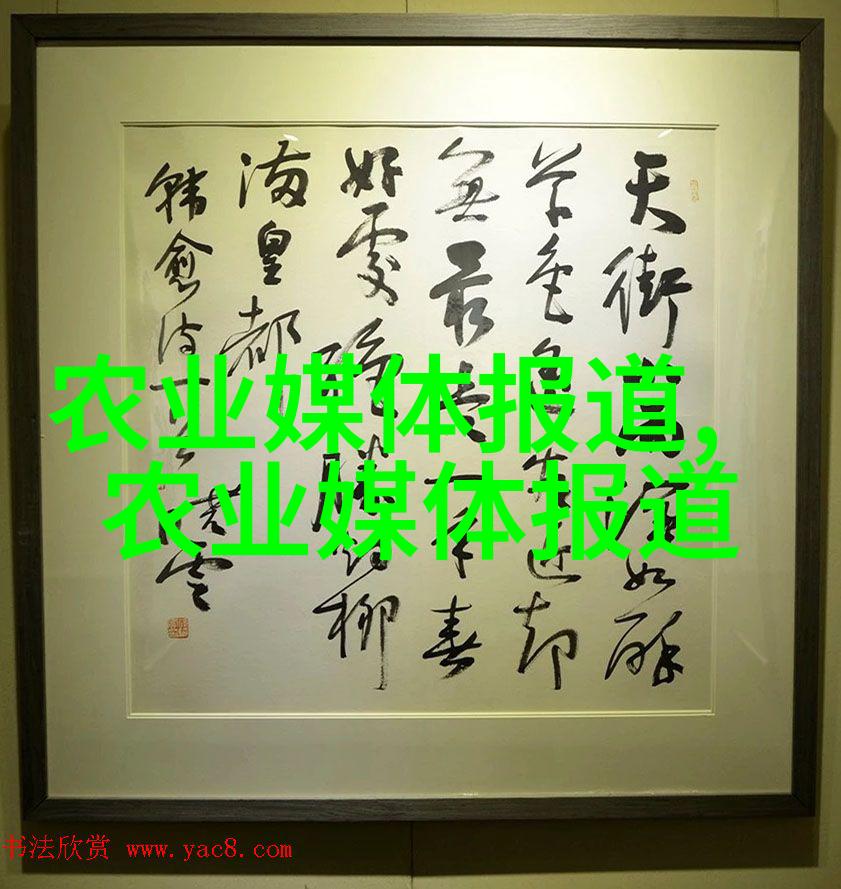 天街小雨潤如酥
草色遥看近却
無最是一年春
好處絕勝煙柳
滿皇都
韓愈詩一首
农业媒体报道,
农业媒体报道
书法欣赏 www.yac8.com